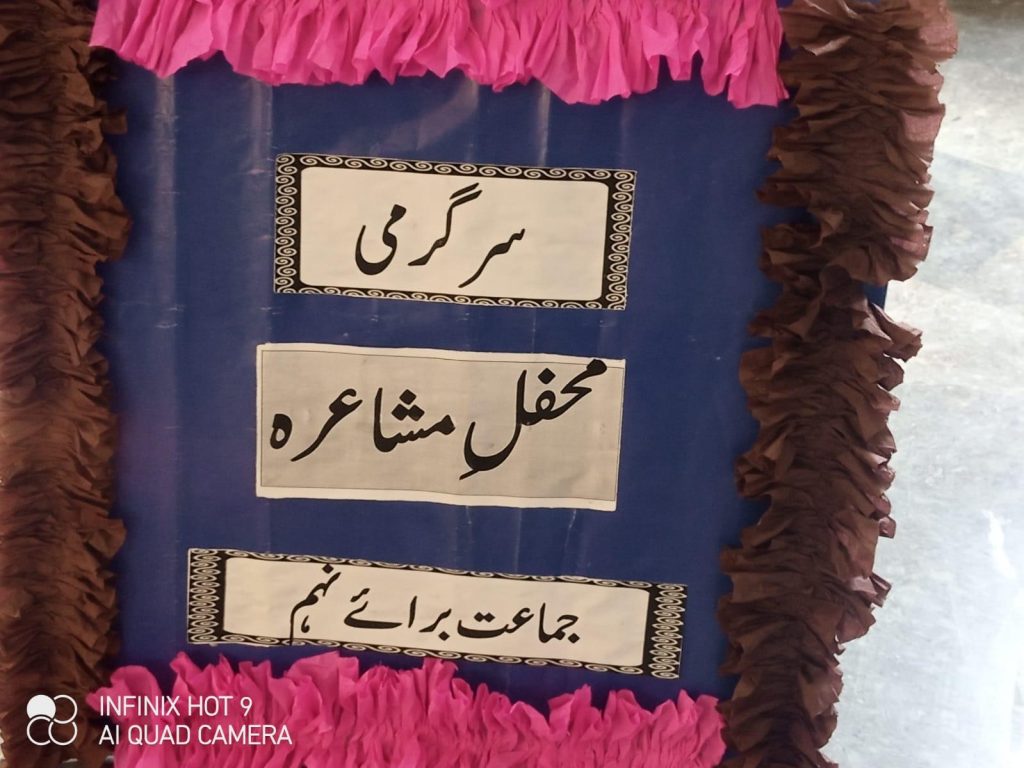 سرگرمی
محفلِ مشاعرہ
جماعت برائے نہم
INFINIX HOT 9
AI QUAD CAMERA